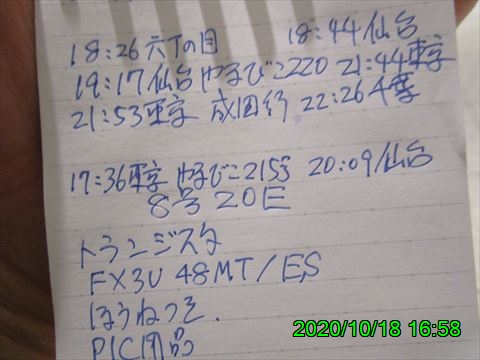 18:26 六丁の目 18:44 仙台
19:17 仙台 やまびこ220 21:44 東京
21:53 東京 成田行 22:26 千葉
17:36 東京 やまびこ215号 20:09/仙台
8号 20E
トランジスタ
FX3U 48MT/ES
ほうねつき.
PIC用品
2020/10/18 16:58